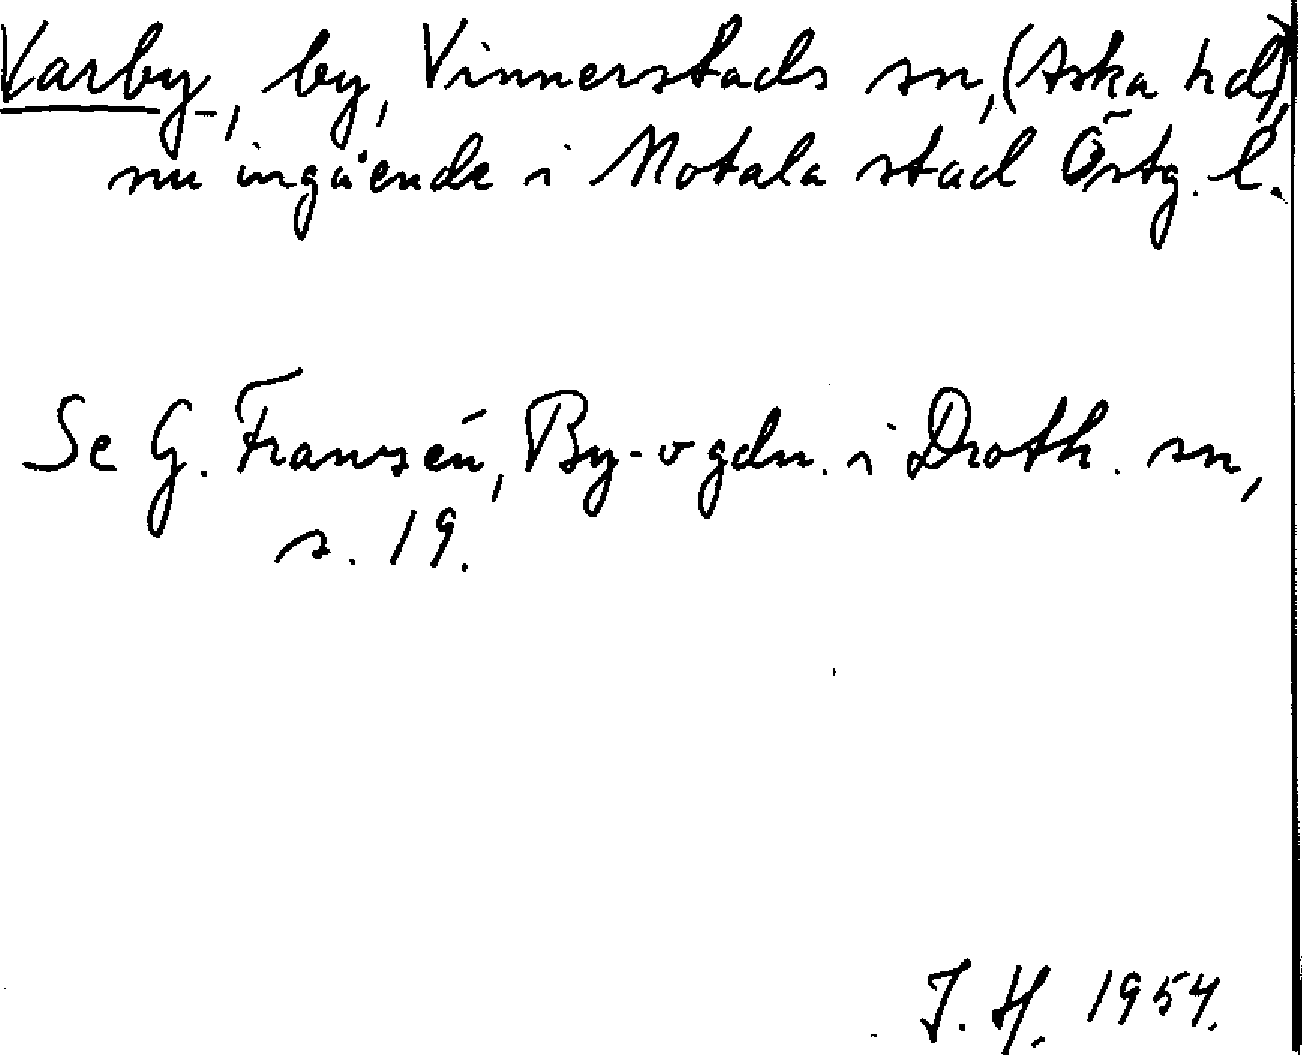 Varby, by, Vinnerstads sn, (Aska hd),
nu ingående i Motala stad Östg. l.
Se G. Franzén, By- o gdn. i Droth. sn,
s. 19.
J. H. 1954.